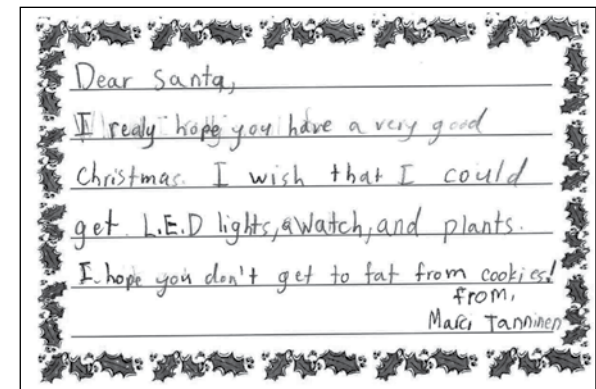 Dear Santa,
I realy hope you have a very good
Christmas. I wish that I could
get L.E.D lights, a watch, and plants.
I hope you don't get to fat from cookies!
from,
Marci Tanninen